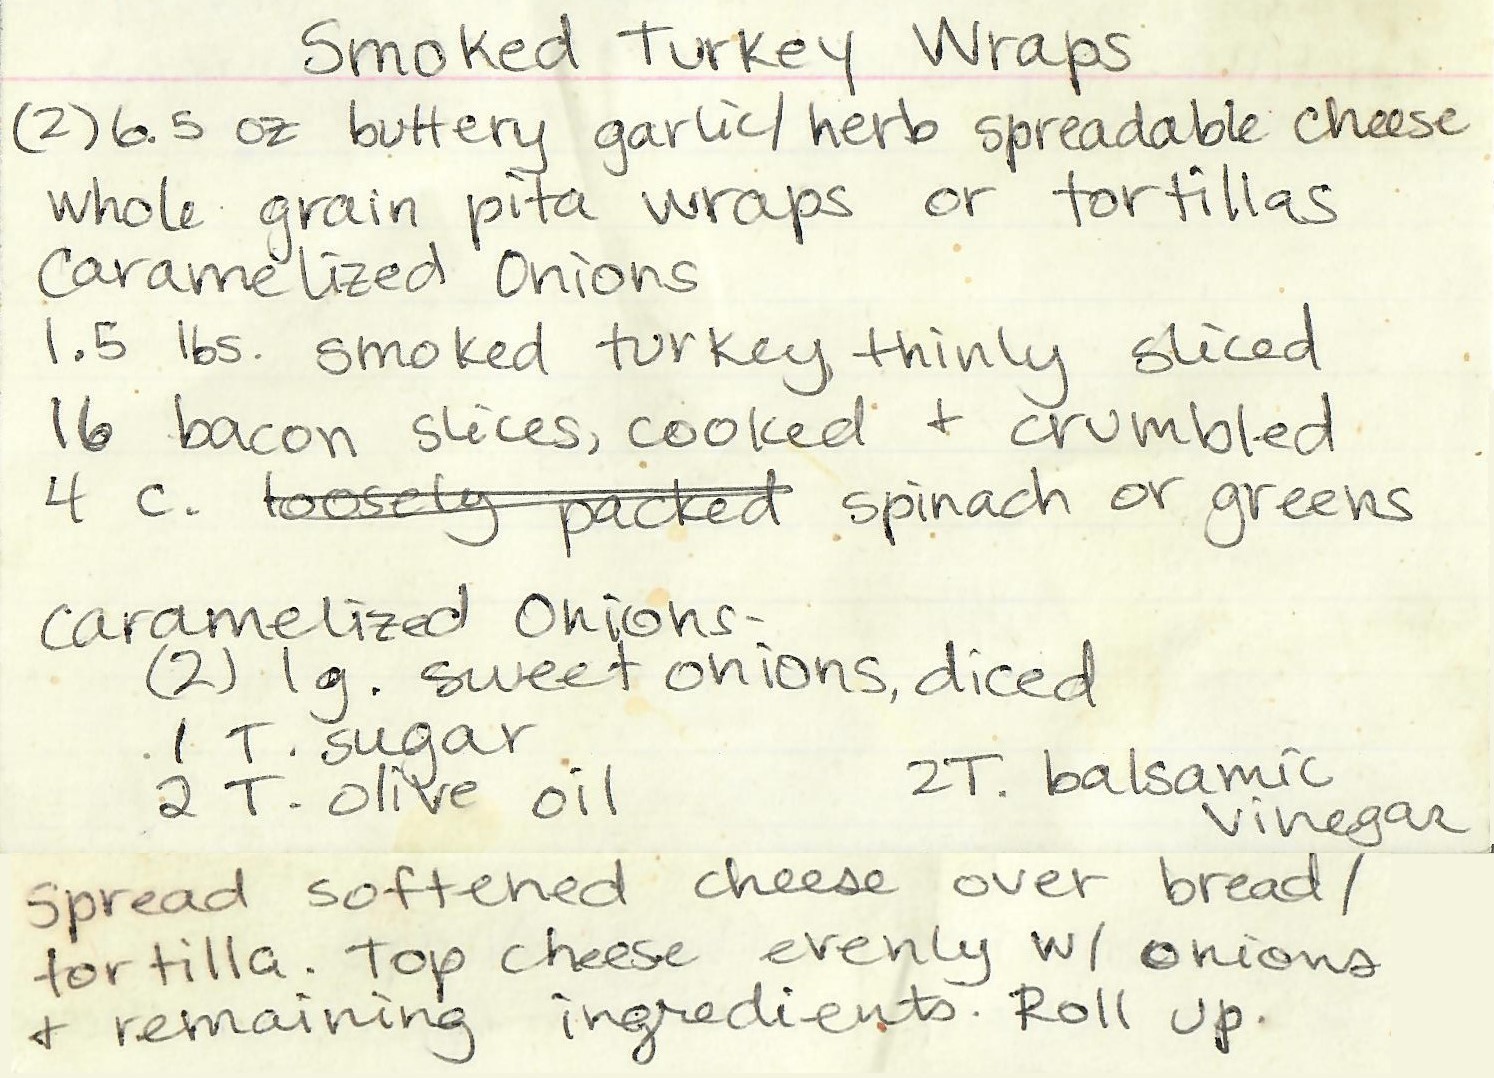 Smoked Turkey Wraps
(2) 6.5 oz buttery garlic/herb spreadable cheese
whole grain pita wraps or tortillas
Caramelized Onions
1.5 lbs. smoked turkey, thinly sliced
16 bacon slices, cooked + crumbled
4 c. loosely packed spinach or greens
Caramelized Onions-
(2) lg. sweet onions, diced
1 T. sugar
2 T. olive oil
2T. balsamic
vinegar
Spread softened cheese over bread/
tortilla. Top cheese evenly w/ onions
+ remaining ingredients. Roll up.